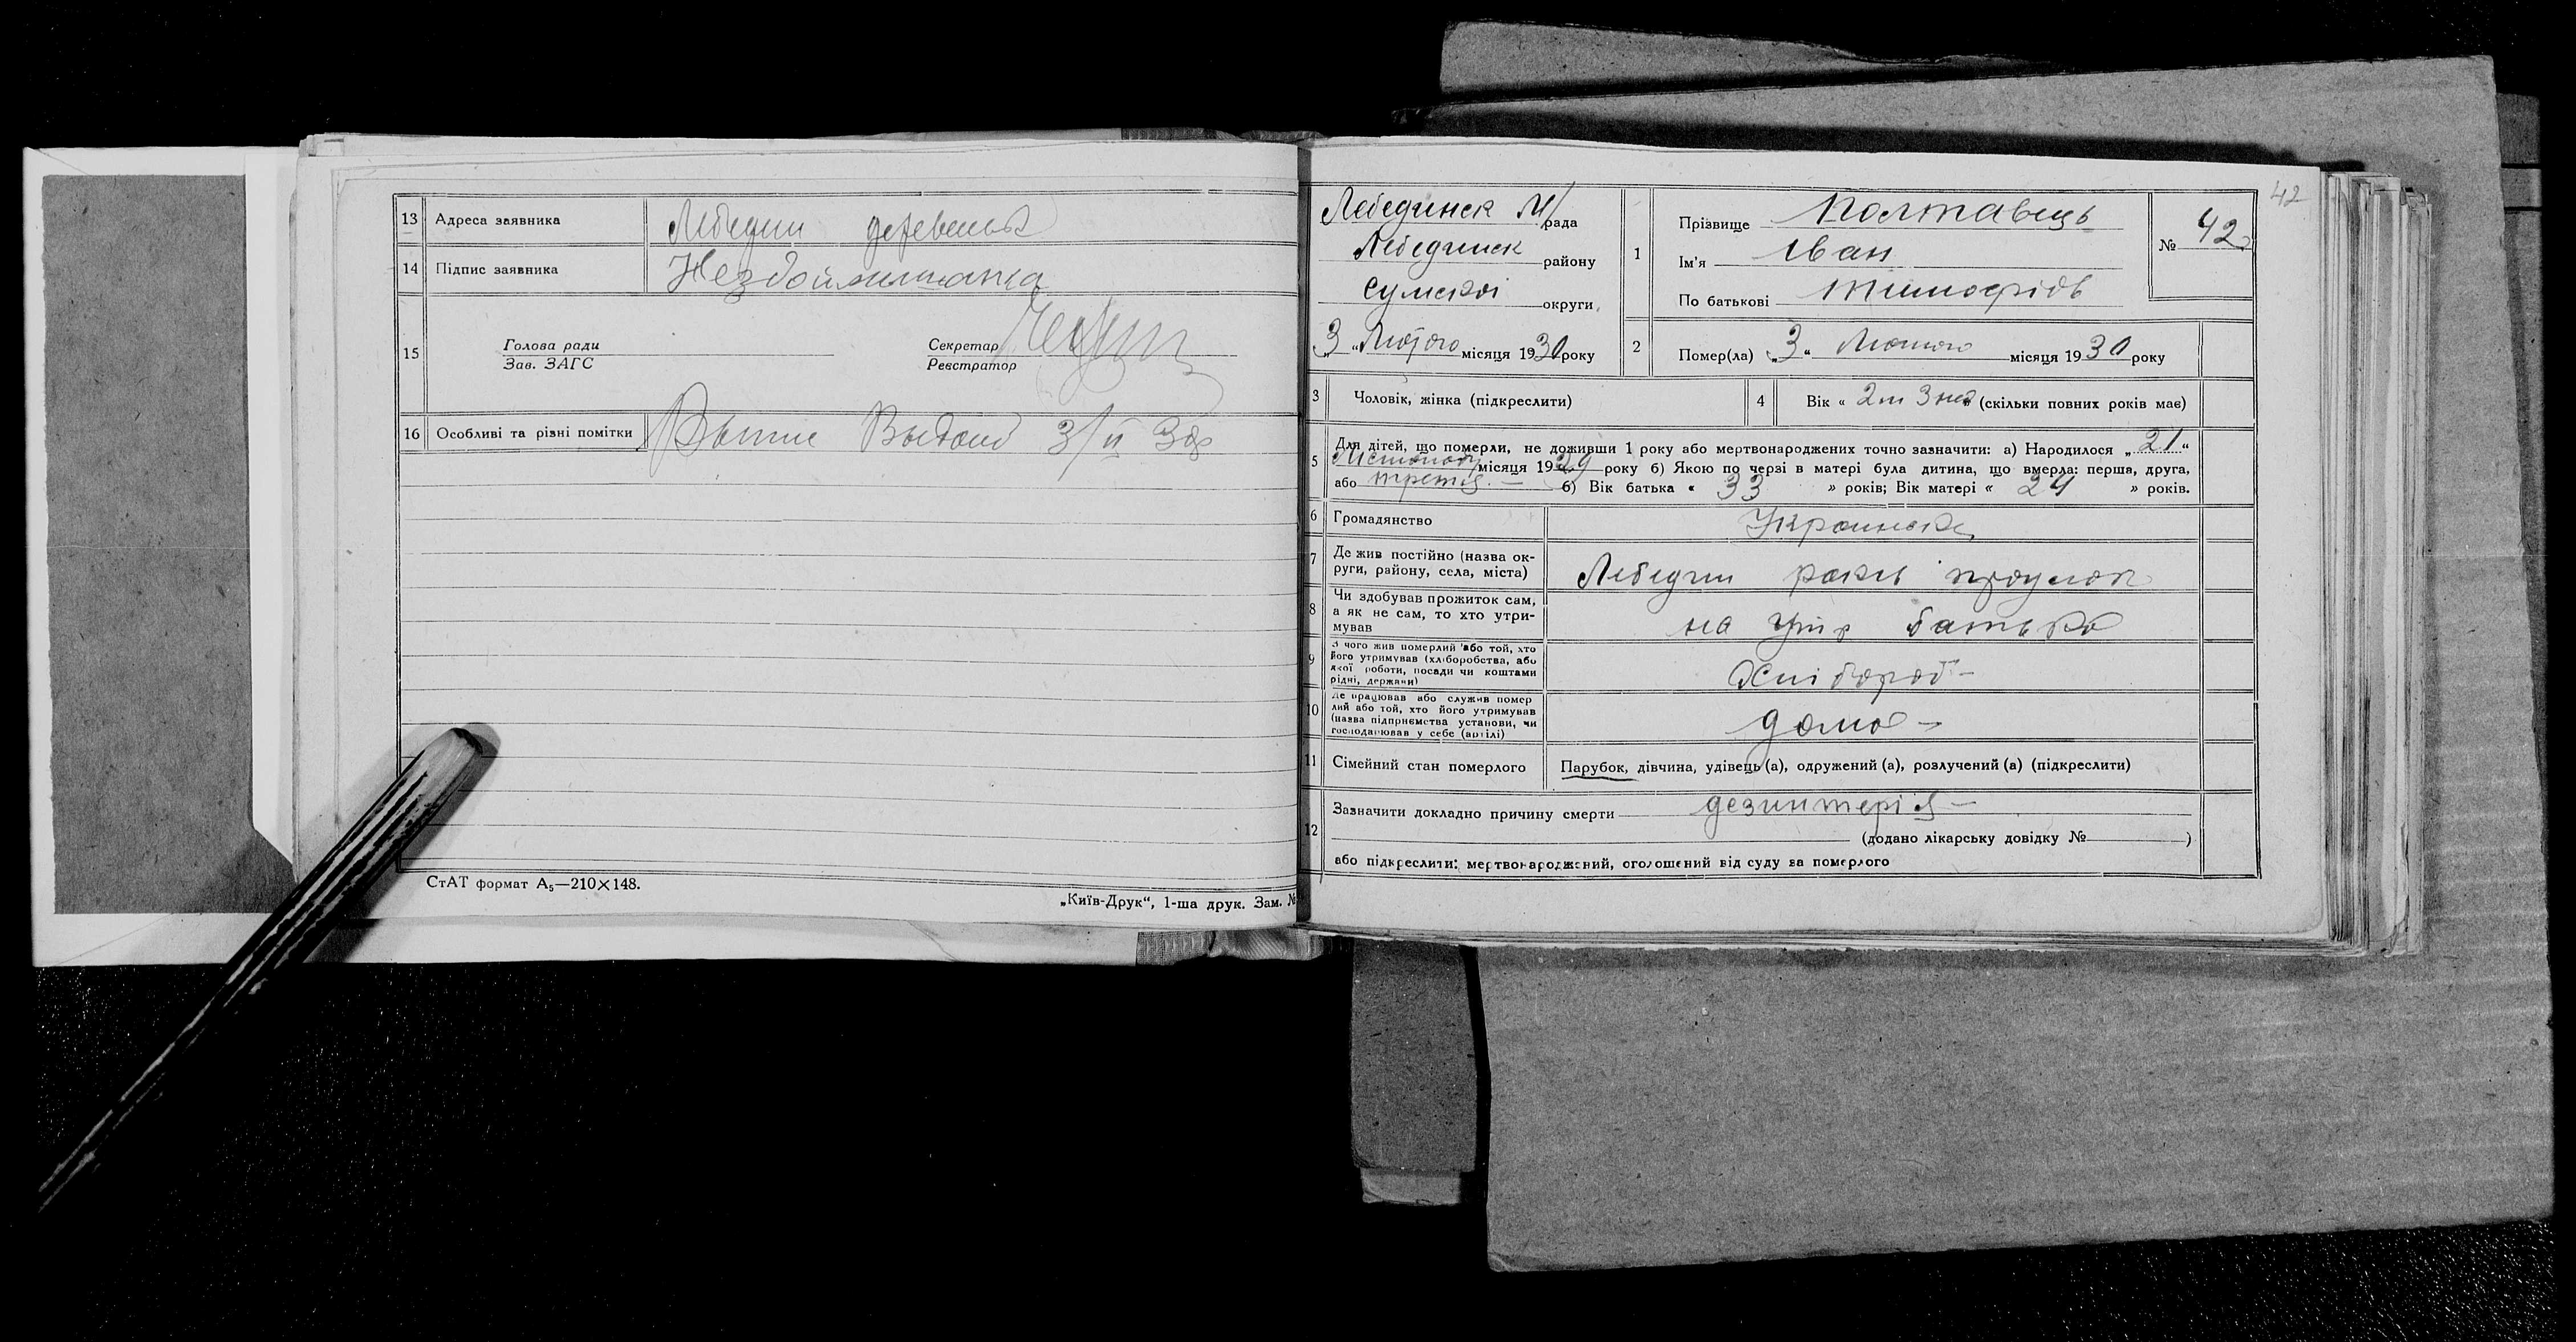 13 Адреса заявника Лебедин
14 Підпис заявника
15 Голова ради
Зав. ЗАГС
Секретар
Реєстратор
16 Особливі та різні помітки 3/II 30р
СтАТ формат А₅—210×148.
„Київ-Друк“, 1-ша друк. Зам. №
42
Лебединск М/рада
Лебединск району
Сумской округи,
„3“ Лютого місяця 1930 року
1 Прізвище Полтавець
Ім'я Іван
По батькові Тимофіїв
№ 42
2 Помер(ла) „3“ Лютого місяця 1930 року
3 Чоловік, жінка (підкреслити)
4 Вік « 2 м 3 » (скільки повних років має)
5 Для дітей, що померли, не доживши 1 року або мертвонароджених точно зазначити: а) Народилося „21“
Листопада місяця 1929 року б) Якою по черзі в матері була дитина, що вмерла: перша, друга,
або третя. — б) Вік батька « 33 » років; Вік матері « 24 » років.
6 Громадянство Украинське
7 Де жив постійно (назва ок-
руги, району, села, міста) Лебедин
8 Чи здобував прожиток сам,
а як не сам, то хто утри-
мував на утр батька
9 З чого жив померлий або той, хто
його утримував (хліборобства, або
якої роботи, посади чи коштами
рідні, держави) Хлібороб—
10 Де працював або служив помер
лий або той, хто його утримував
(назва підприємства установи, чи
господарював у себе (артілі) дома —
11 Сімейний стан померлого Парубок, дівчина, удівець (а), одружений (а), розлучений (а) (підкреслити)
12 Зазначити докладно причину смерти дезинтерія —
(додано лікарську довідку № )
або підкреслити: мертвонароджений, оголошений від суду за померлого